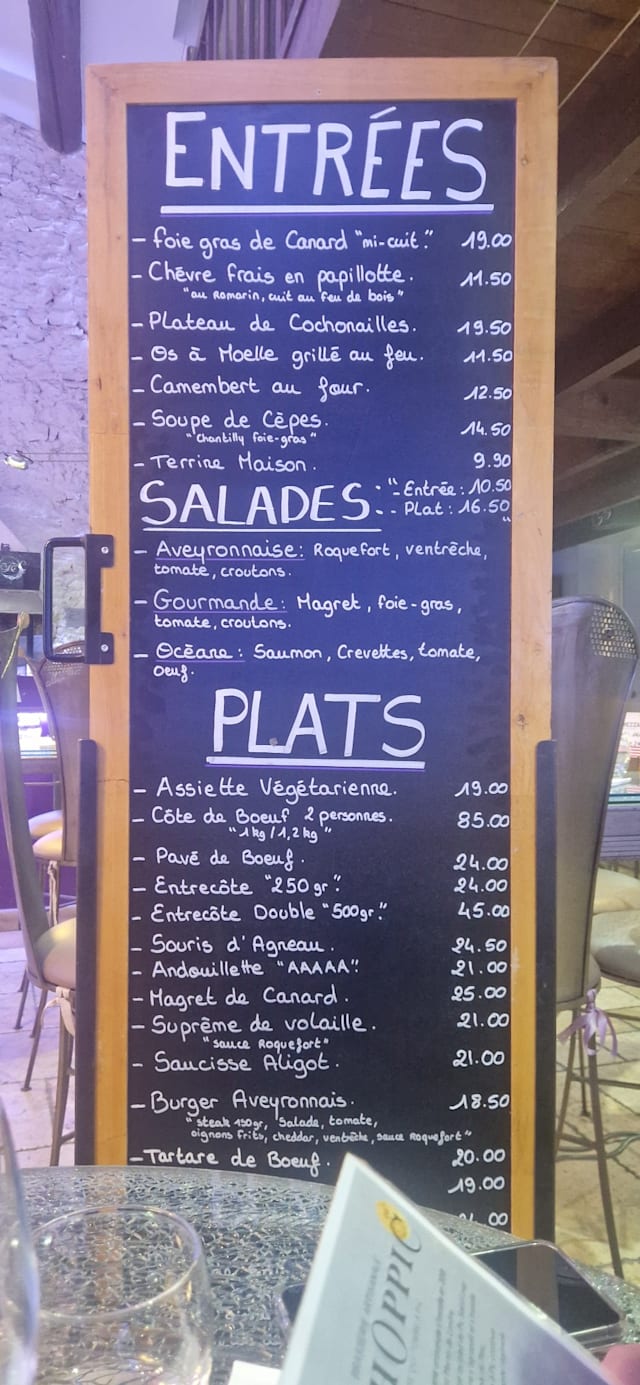 ENTRÉES
- foie gras de Canard "mi-cuit." 19.00
- Chévre frais en papillotte. 11.50
"au Romarin, cuit au feu de bois"
- Plateau de Cochonailles. 19.50
- Os à Moelle grillé au feu. 11.50
- Camembert au four. 12.50
- Soupe de Cèpes. 14.50
"Chantilly foie-gras"
- Terrine Maison. 9.90
SALADES: "- Entrée: 10.50
- Plat: 16.50"
- Aveyronnaise: Roquefort, ventrêche,
tomate, croutons.
- Gourmande: Magret, foie-gras,
tomate, croutons.
- Océane: Saumon, Crevettes, tomate,
oeuf.
PLATS
- Assiette Végétarienne. 19.00
- Côte de Boeuf 2 personnes. 85.00
"1kg/1,2kg"
- Pavé de Boeuf. 24.00
- Entrecôte "250gr". 24.00
- Entrecôte Double "500gr". 45.00
- Souris d'Agneau. 24.50
- Andouillette "AAAAA". 21.00
- Magret de Canard. 25.00
- Suprême de volaille. 21.00
"sauce Roquefort"
- Saucisse Aligot. 21.00
- Burger Aveyronnais. 18.50
"steak 150gr, Salade, tomate,
oignons frits, cheddar, ventrêche, sauce Roquefort"
- Tartare de Boeuf. 20.00
19.00
.00